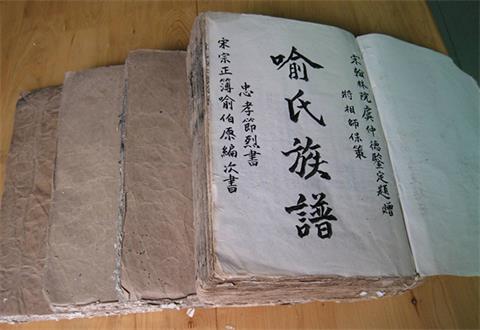 宋翰林院虞仲德鑒定題贈
將相師保
喻氏族譜
忠孝節烈書
宋宗正簿喻伯原編次書